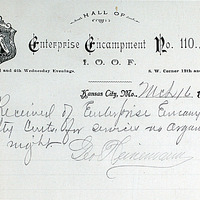 HALL OF
Enterprise Encampment No. 110.
I. O. O. F.
and 4th Wednesday Evenings.
S. W. Corner 12th and
Kansas City, Mo., Mch 16
Received of Enterprise Encamp
ty Cents for services as organ
night
Geo